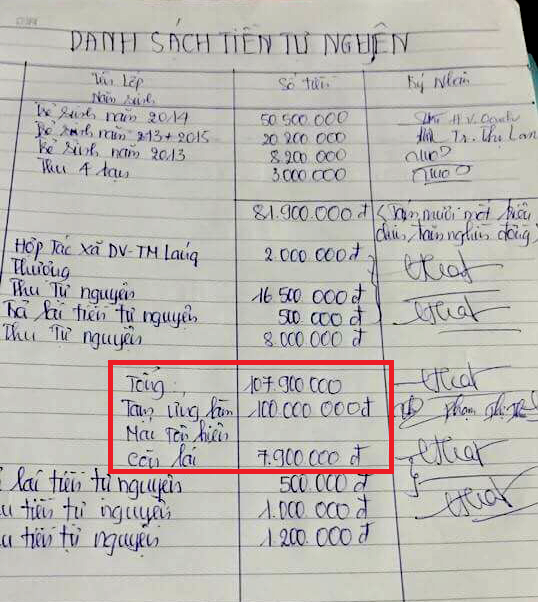 DANH SÁCH TIỀN TỰ NGUYỆN
Tên Lớp Số tiền Ký Nhân
Năm sinh
Bé sinh năm 2014 50 500 000 H.V.
Bé sinh năm 213+2015 20 200 000 Tr. Thị Lan
Bé sinh năm 2013 8 200 000
Thu 4 bạn 3 000 000
81.900.000đ (Tám mươi một triệu
chín trăm nghìn đồng)
Hợp Tác Xã DV-TM Lang 2.000 000đ
Thường
Thu Tự nguyện 16 500 000đ
Trả lại tiền tự nguyện 500 000đ
Thu Tự nguyện 8.000 000đ
Tổng: 107.900 000
Tạm ứng làm 100.000 000đ Phạm
Mái Tôn hiên
Còn lại 7.900 000 đ
lại tiền tự nguyện 500.000 đ
u tiền tự nguyện 1.000 000đ
u tiền tự nguyện 1 200 000đ